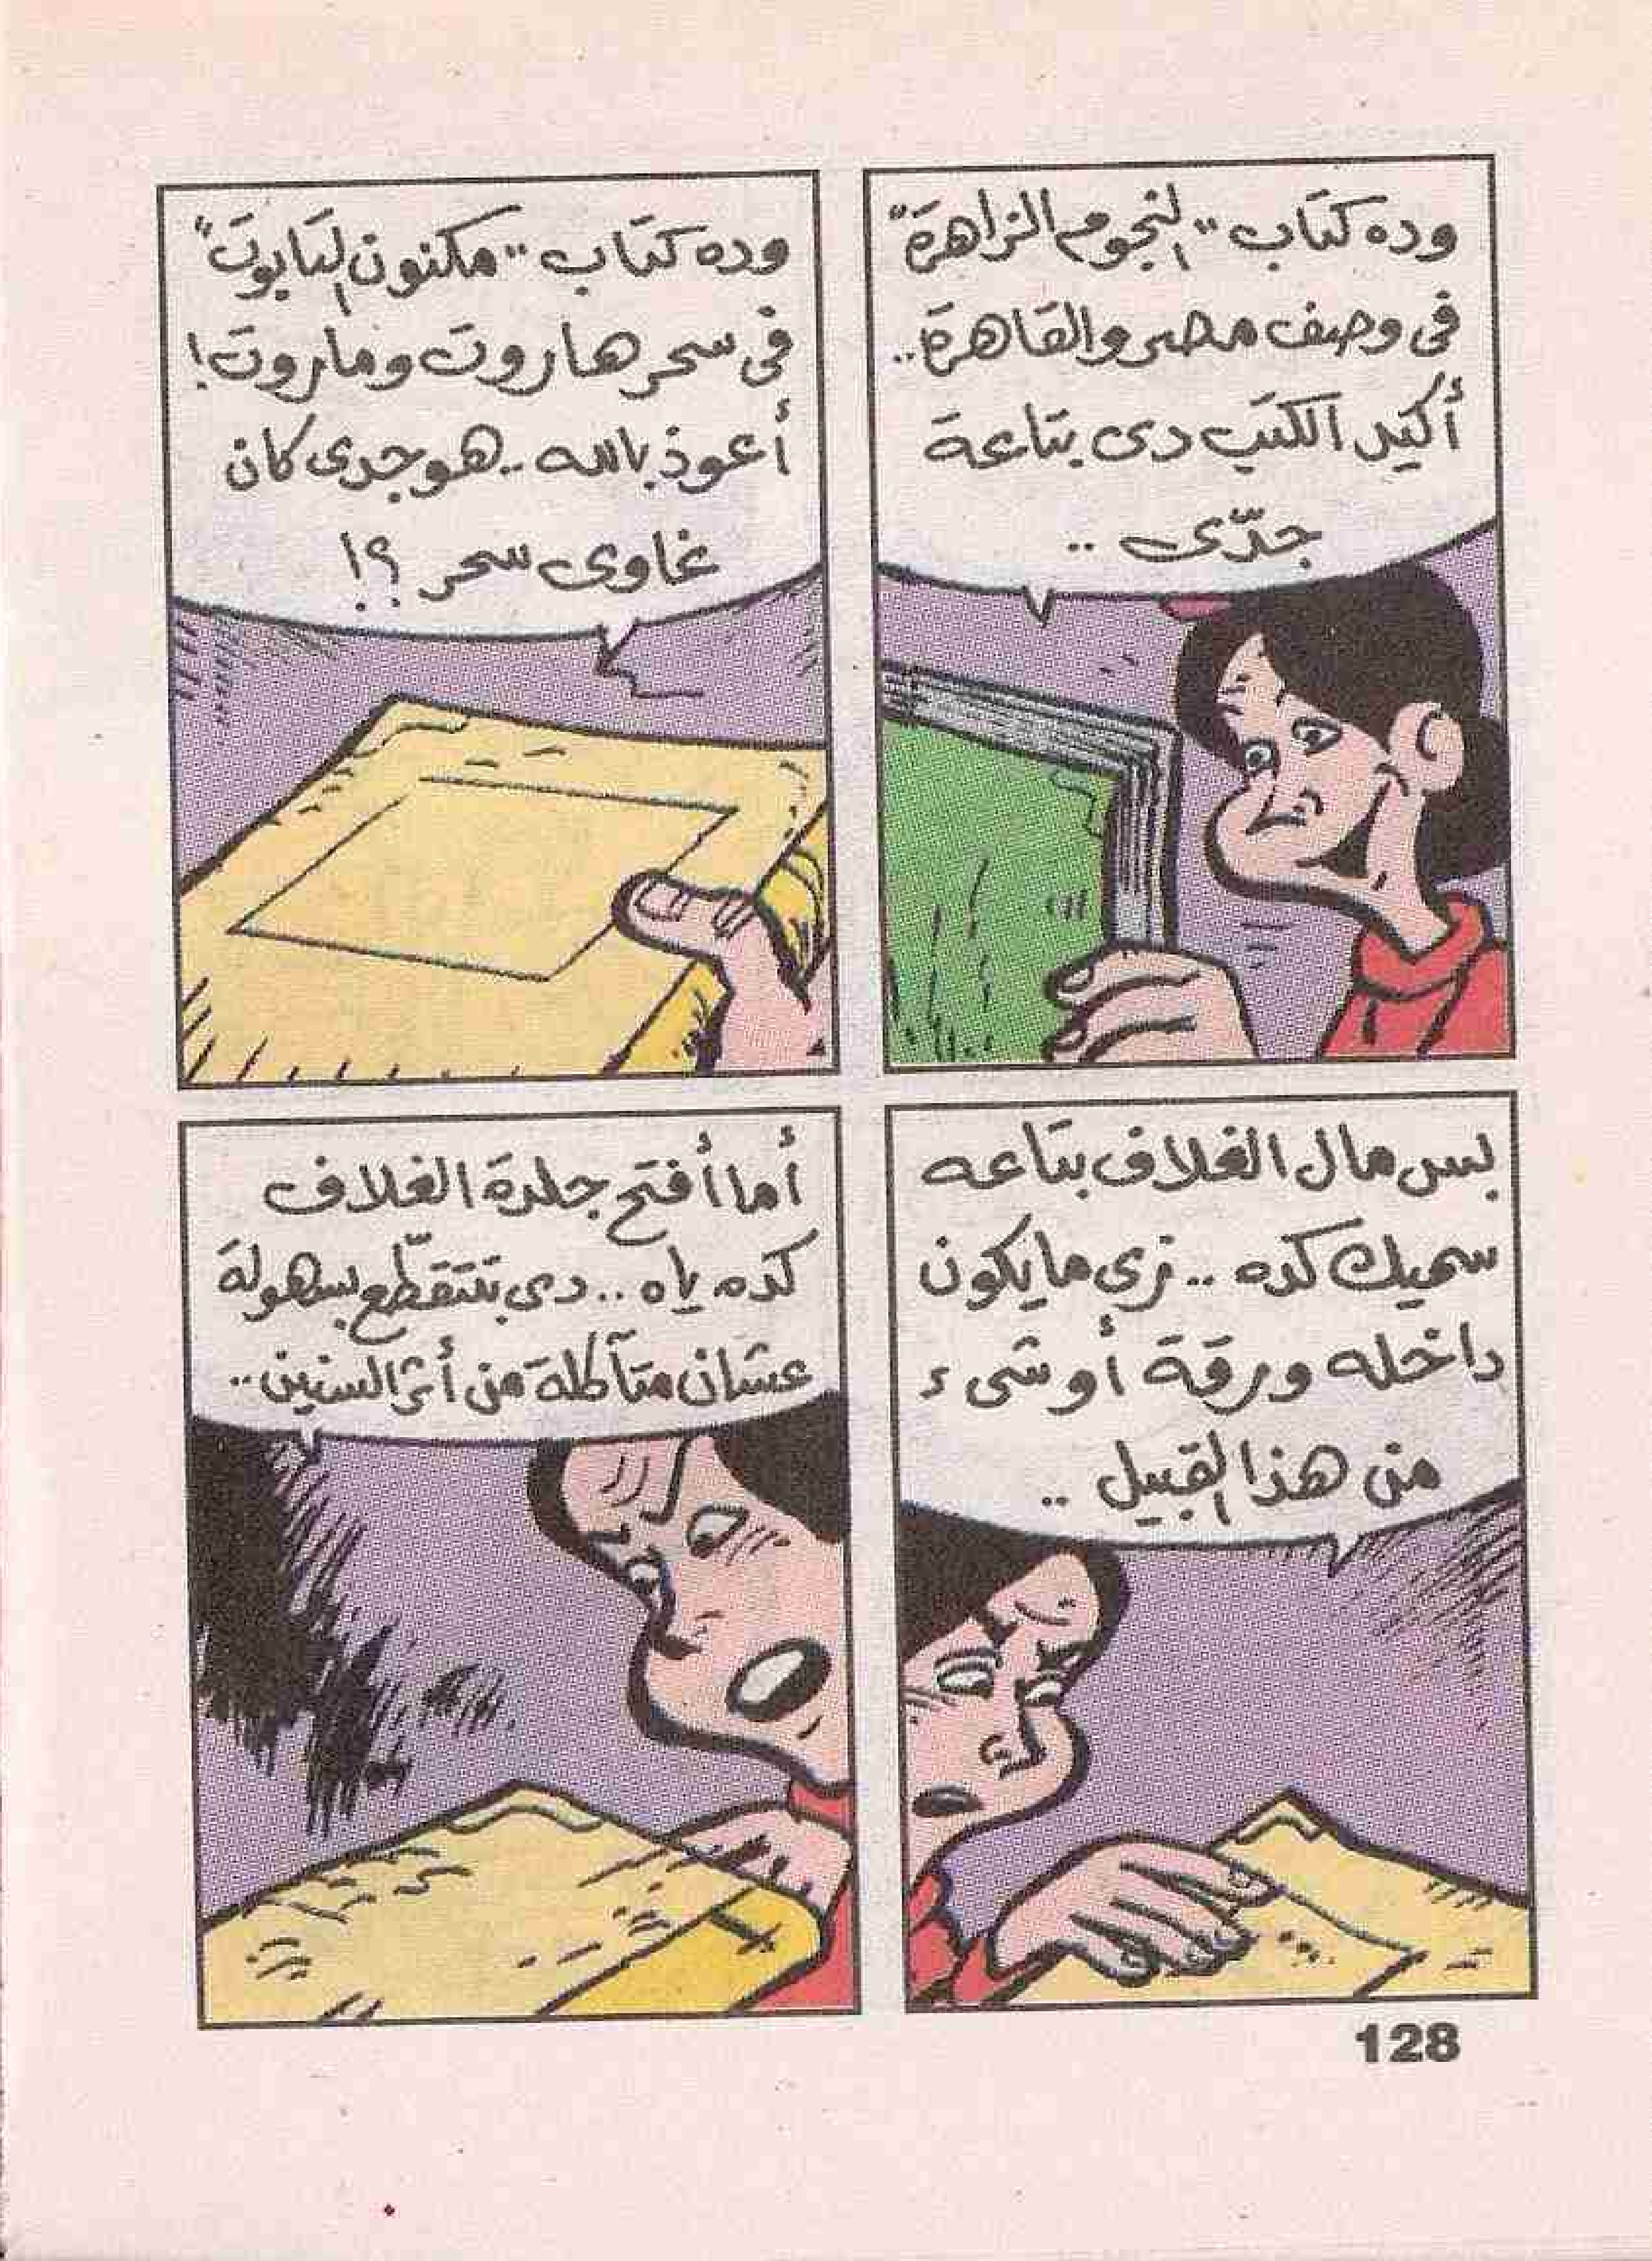 وده كتاب "النجوم الزاهرة"
فى وصف مصر والقاهرة..
أكيد الكتب دى بتاعة
جدّى ..
وده كتاب "مكنون التابوت"
فى سحر هاروت وماروت!
أعوذ بالله .. هو جدى كان
غاوى سحر ؟!
بس مال الغلاف بتاعه
سميك كده .. زى ما يكون
داخله ورقة أو شىء
من هذا القبيل ..
أما أفتح جلدة الغلاف
كده ياه .. دى بتتقطّع بسهولة
عشان متآكلة من أثر السنين ..
128